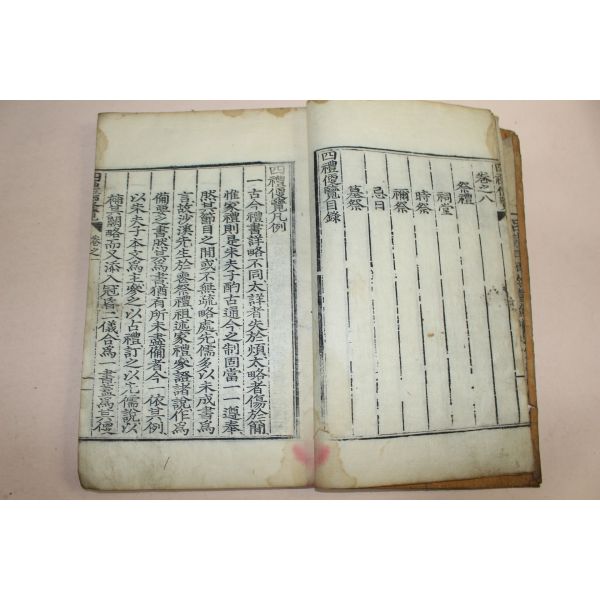 卷之八
祭禮
祠堂
時祭
禰祭
忌日
墓祭
四禮便覽目錄
四禮便覽凡例
一古今禮書詳略不同太詳者失於煩太略者傷於簡
惟家禮則是朱夫子酌古通今之制固當一一遵奉
然其節目之間或不無疏略處先儒多以未成書爲
言故沙溪先生於喪祭禮祖述家禮家諸說作爲
備要之書然其爲書猶有所未盡備者今一依其例
以朱夫子本文爲主參之以古禮訂之以先儒說以
補其闕略而又添入冠昏二儀合爲一書蓋爲其便
卷之一